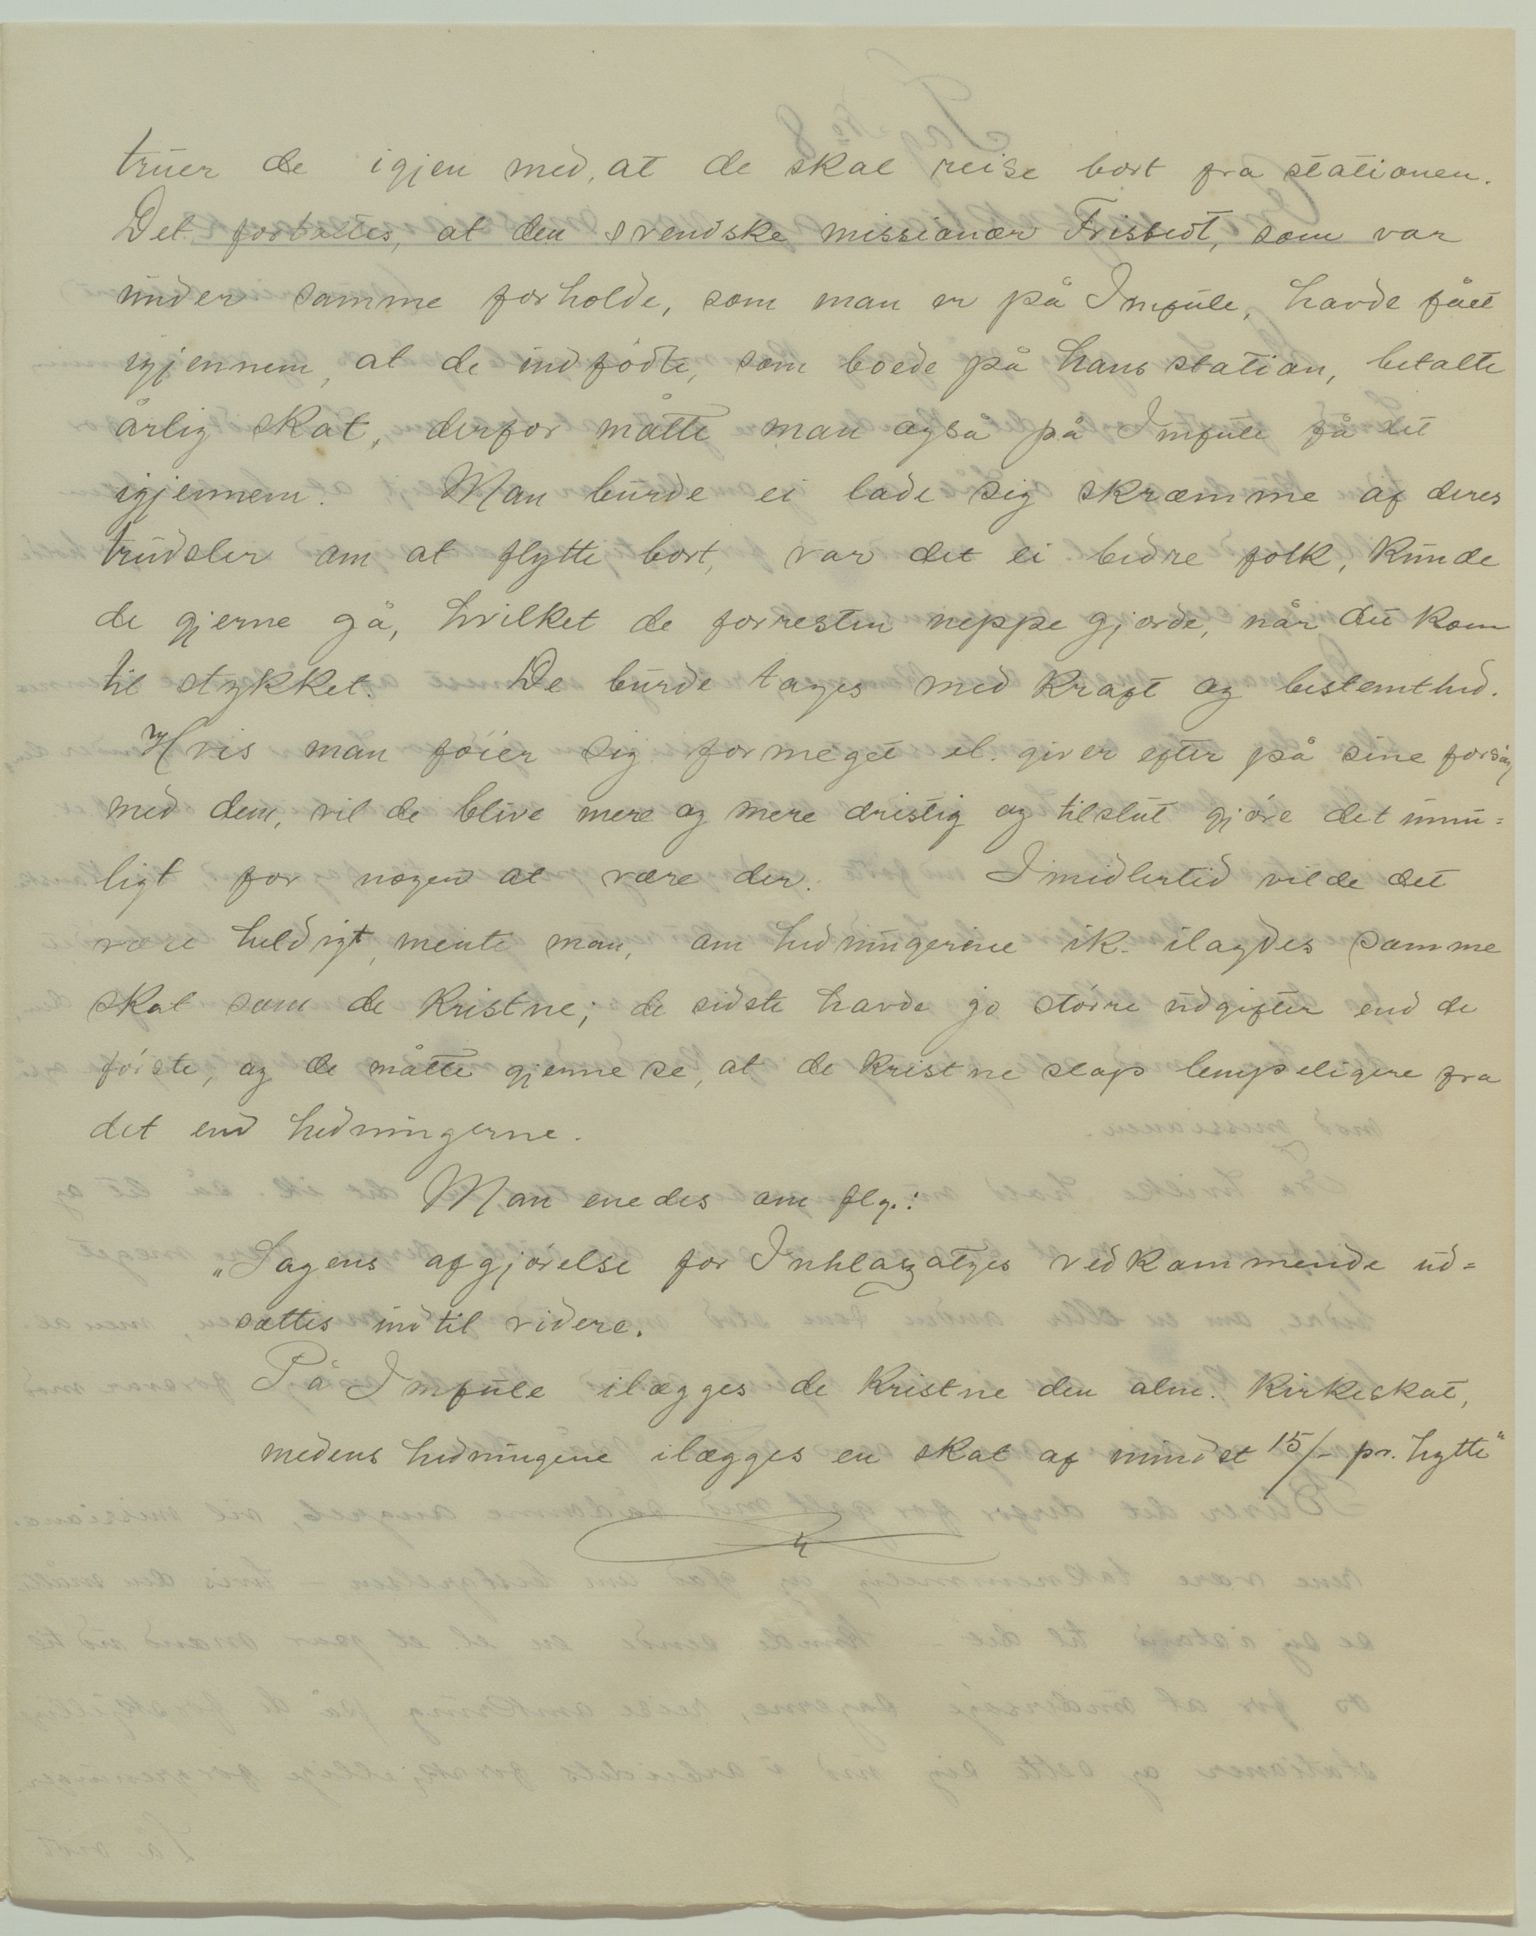 truer de igjen med, at de skal reise bort fra stationen.
Det fortaltes, at den svendske missionær Fristedt, som var
under samme forholde, som man er på Imfule, havde fået
igjennem, at de indfødte, som boede på hans station, betalte
årlig skat, derfor måtte man også på Imfule få det
igjennem. Man burde ei lade sig skræmme af deres
trudsler om at flytte bort, var det ei bedre folk, kunde
de gjerne gå, hvilket de forresten neppe gjorde, når det kom
til stykket. De burde tages med kraft og bestemthed.
Hvis man føier sig formeget el. giver efter på sine forsøg
med dem, vil de blive mere og mere dristig og tilslut gjøre det umu=
ligt for nogen at være der. Imidlertid vilde det
være heldigt, mente man, om hedningerne ik. ilagdes samme
skat som de kristne; de sidste havde jo større udgifter end de
første, og de måtte gjerne se, at de kristne slap lempeligere fra
det end hedningerne.
Man enedes om flg.:
„Sagens afgjørelse for Inhlazatyes vedkommende ud=
sættes indtil videre.
På Imfule ilægges de kristne den alm. kirkeskat,
medens hedningene ilægges en skat af mindst 15/- pr. hytte"